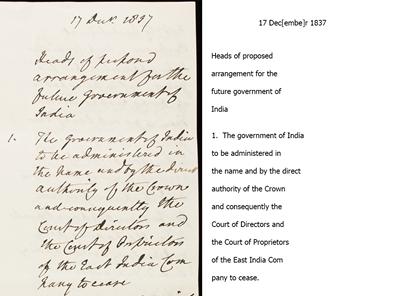 17 Decr. 1857
Heads of proposed
arrangement for the
future government of
India
1. The government of India
to be administered in
the name and by the direct
authority of the Crown
and consequently the
Court of Directors and
the Court of Proprietors
of the East India Com
pany to cease
17 Dec[embe]r 1837
Heads of proposed
arrangement for the
future government of
India
1. The government of India
to be administered in
the name and by the direct
authority of the Crown
and consequently the
Court of Directors and
the Court of Proprietors
of the East India Com
pany to cease.